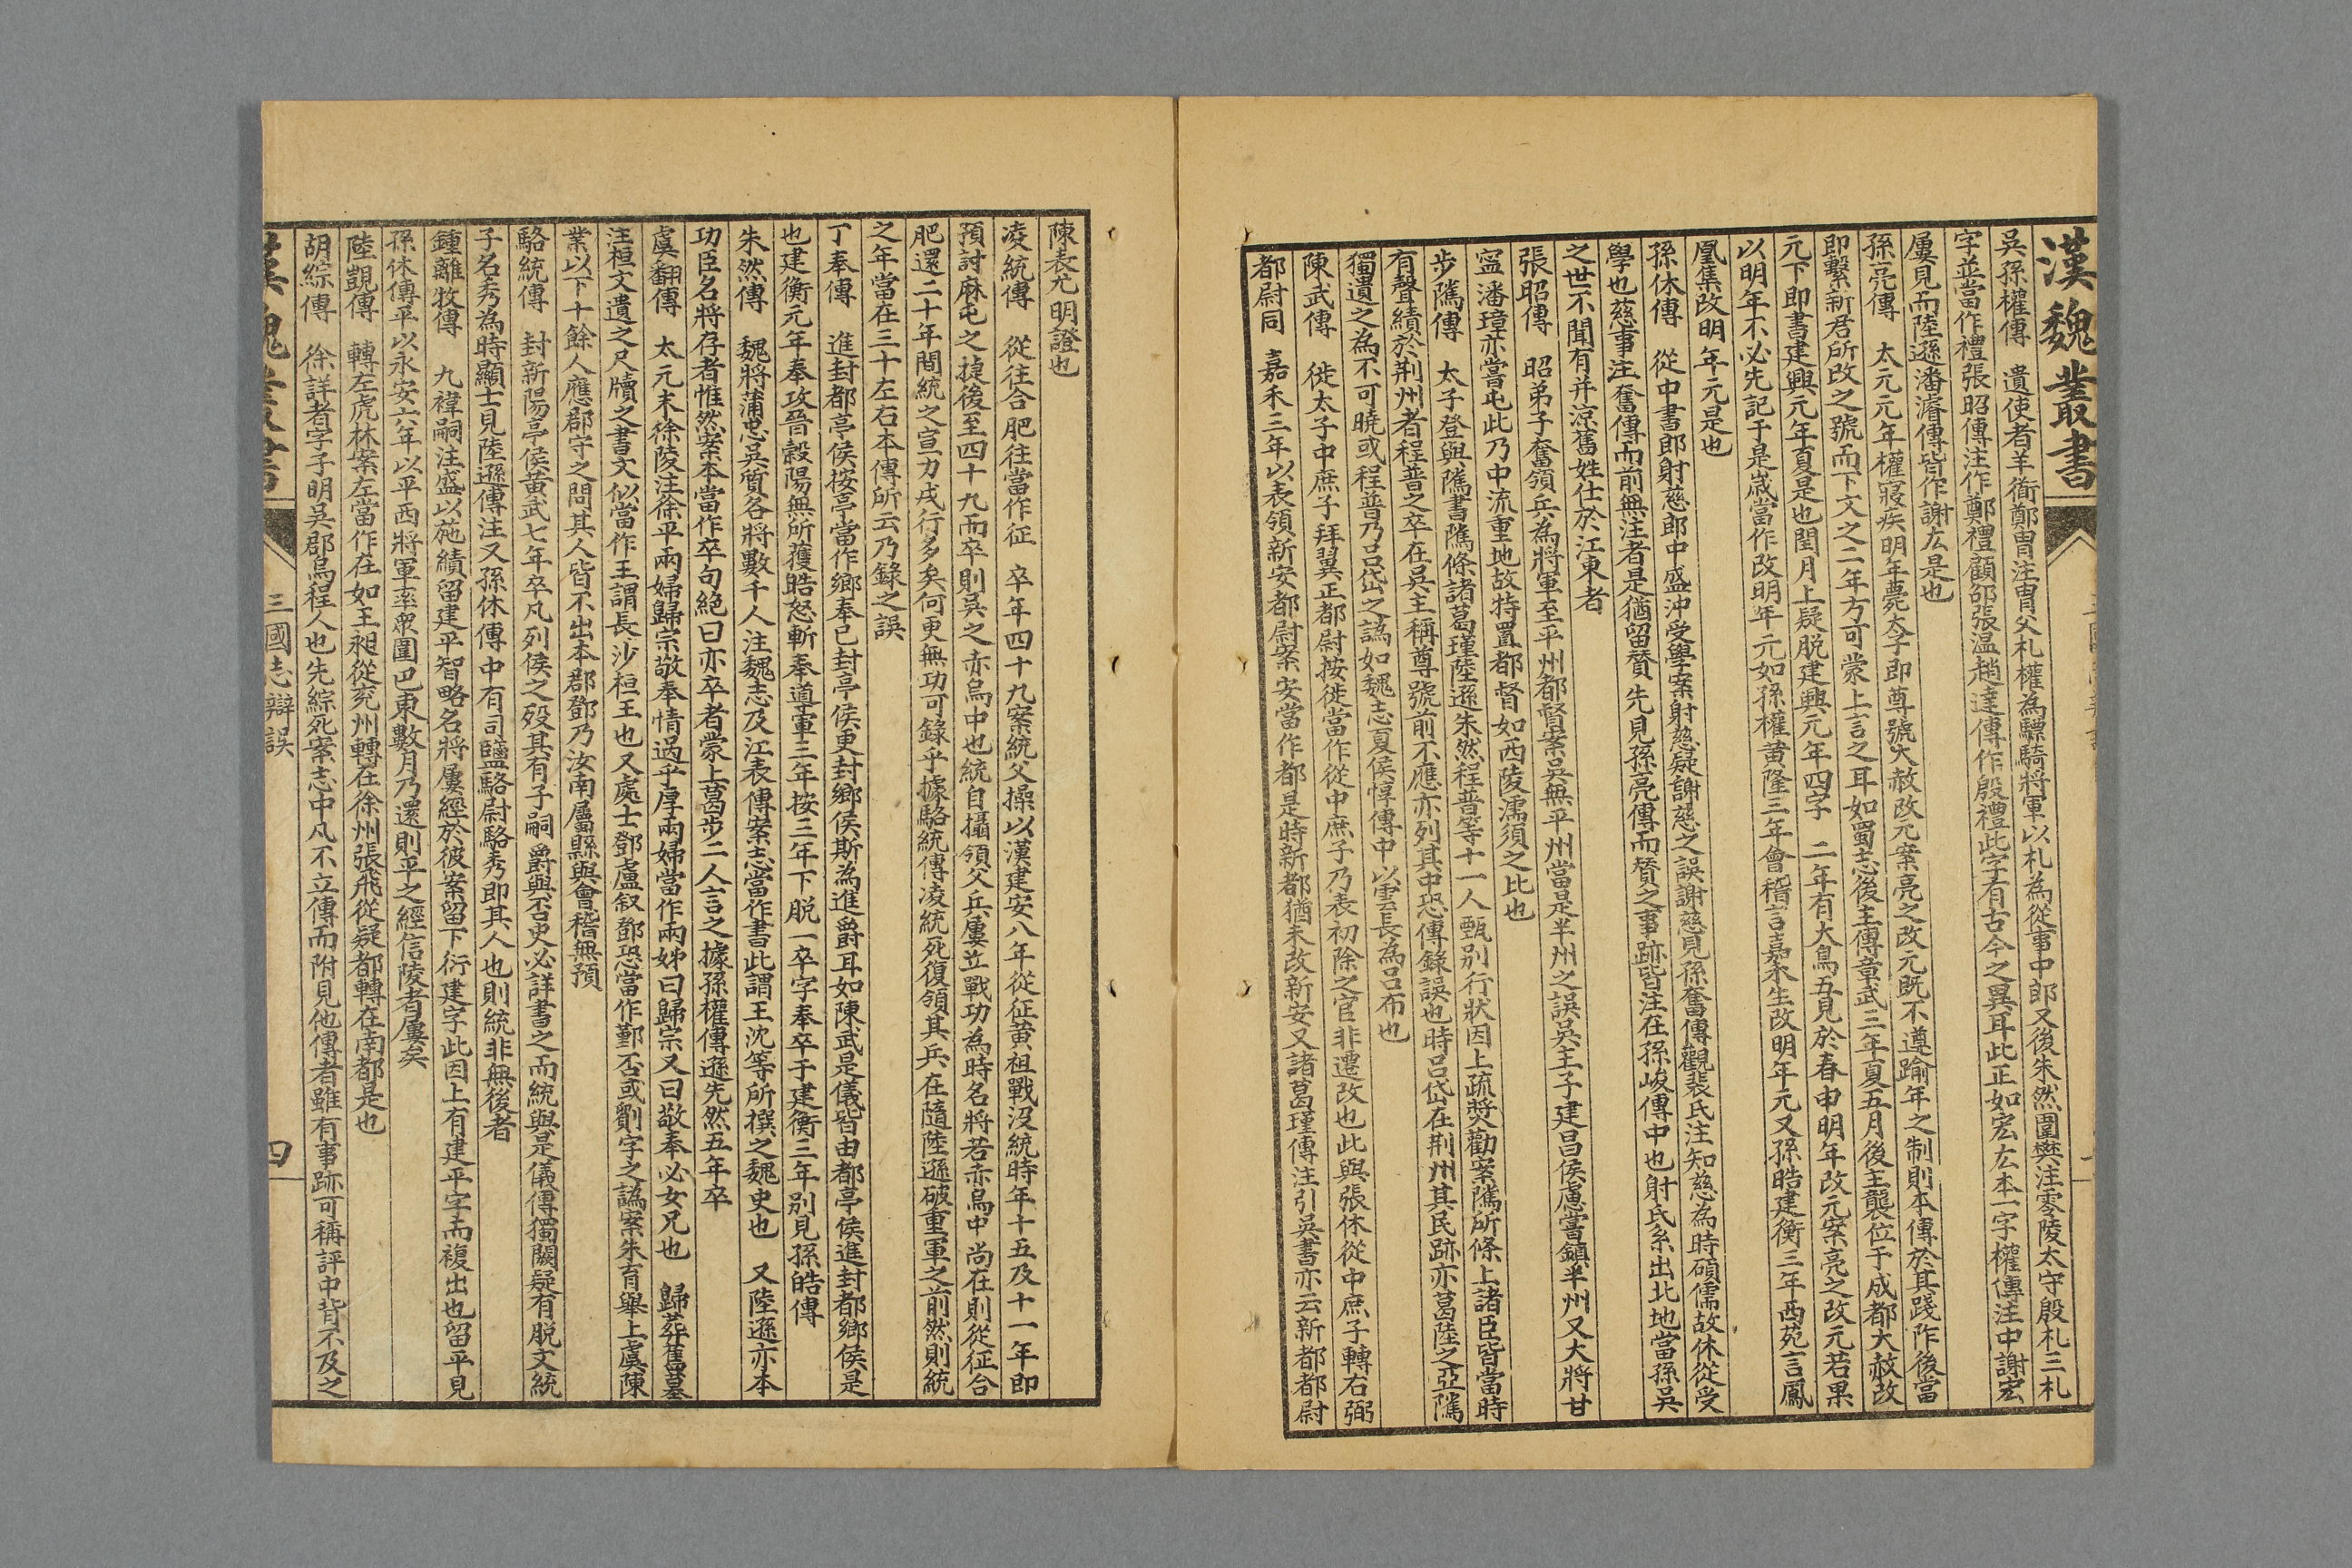 漢魏叢書
吳孫權傳　遺使者羊衜鄭冑注冑父札權為驃騎將軍以札為從事中郎又後朱然圍樊注零陵太守殷札三札
字並當作禮張昭傳注作鄭禮顧邵張温趙達傳作殷禮此字有古今之異耳此正如宏厷本一字權傳注中謝宏
屢見而陸遜潘濬傳皆作謝厷是也
孫亮傳　太元元年權寢疾明年薨太子即尊號大赦改元案亮之改元既不遵踰年之制則本傳於其踐阼後當
即繫新君所改之號而下文之二年方可蒙上言之耳如蜀志後主傳章武三年夏五月後主襲位于成都大赦改
元下即書建興元年夏是也閏月上疑脱建興元年四字　二年有大鳥五見於春申明年改元案亮之改元若果
以明年不必先記于是歲當作改明年元如孫權黄隆三年會稽言嘉禾生改明年元又孫晧建衡三年西苑言鳳
凰集改明年元是也
孫休傳　從中書郎射慈郎中盛沖受學案射慈疑謝慈之誤謝慈見孫奮傳觀裴氏注知慈為時碩儒故休從受
學也慈事注奮傳而前無注者是猶留贊先見孫亮傳而贊之事跡皆注在孫峻傳中也射氏系出北地當孫吳
之世不聞有并涼舊姓仕於江東者
張昭傳　昭弟子奮領兵為將軍至平州都督案吳無平州當是半州之誤吳主子建昌侯慮嘗鎮半州又大將甘
寍潘璋亦嘗屯此乃中流重地故持置都督如西陵濡須之比也
步隲傳　太子登與隲書隲條諸葛瑾陸遜朱然程普等十一人甄别行狀因上疏奬勸案隲所條上諸臣皆當時
有聲績於荆州者程普之卒在吳主稱尊號前不應亦列其中恐傳錄誤也時呂岱在荆州其民跡亦葛陸之亞隲
獨遺之為不可曉或程普乃呂岱之譌如魏志夏侯惇傳中以雲長為呂布也
陳武傳　徙太子中庶子拜翼正都尉按徙當作從中庶子乃表初除之官非遷改也此與張休從中庶子轉右弼
都尉同　嘉禾三年以表領新安都尉案安當作都是時新都猶未改新安又諸葛瑾傳注引吳書亦云新都都尉
陳表尤明證也
凌統傳　從往合肥往當作征　卒年四十九案統父操以漢建安八年從征黄祖戰沒統時年十五及十一年即
預討麻屯之捷後至四十九而卒則吳之赤烏中也統自攝領父兵屢立戰功為時名將若赤烏中尚在則從征合
肥還二十年間統之宣力戎行多矣何更無功可錄乎據駱統傳凌統死復領其兵在隨陸遜破重軍之前然則統
之年當在三十左右本傳所云乃錄之誤
丁奉傳　進封都亭侯按亭當作鄉奉已封亭侯更封鄉侯斯為進爵耳如陳武是儀皆由都亭侯進封都鄉侯是
也建衡元年奉攻晉穀陽無所獲晧怒斬奉導軍三年按三年下脱一卒字奉卒于建衡三年别見孫皓傳
朱然傳　魏將蒲忠吳質各將數千人注魏志及江表傳案志當作書此謂王沈等所撰之魏史也　又陸遜亦本
功臣名將存者惟然案本當作卒句絶曰亦卒者蒙上葛步二人言之據孫權傳遜先然五年卒
虞翻傳　太元末徐陵注徐平兩婦歸宗敬奉情過乎厚兩婦當作兩姊曰歸宗又曰敬奉必女兄也　歸葬舊墓
注桓文遺之尺牘之書文似當作王謂長沙桓王也又處士鄧盧叙鄧恐當作鄞否或鄮字之譌案朱育舉上虞陳
業以下十餘人應郡守之問其人皆不出本郡鄧乃汝南屬縣與會稽無預
駱統傳　封新陽亭侯黄武七年卒凡列侯之殁其有子嗣爵與否史必詳書之而統與是儀傳獨闕疑有脱文統
子名秀為時顯士見陸遜傳注又孫休傳中有司鹽駱尉駱秀即其人也則統非無後者
鍾離牧傳　九禕嗣注盛以葹績留建平智略名將屢經於彼案留下衍建字此因上有建平字而複出也留平見
孫休傳平以永安六年以平西將軍率衆圍巴東數月乃還則平之經信陵者屢矣
陸覬傳　轉左虎林案左當作在如王昶從兖州轉在徐州張飛從疑都轉在南都是也
胡綜傳　徐詳者字子明吳郡烏程人也先綜死案志中凡不立傳而附見他傳者雖有事跡可稱評中背不及之
三國志辯誤
四